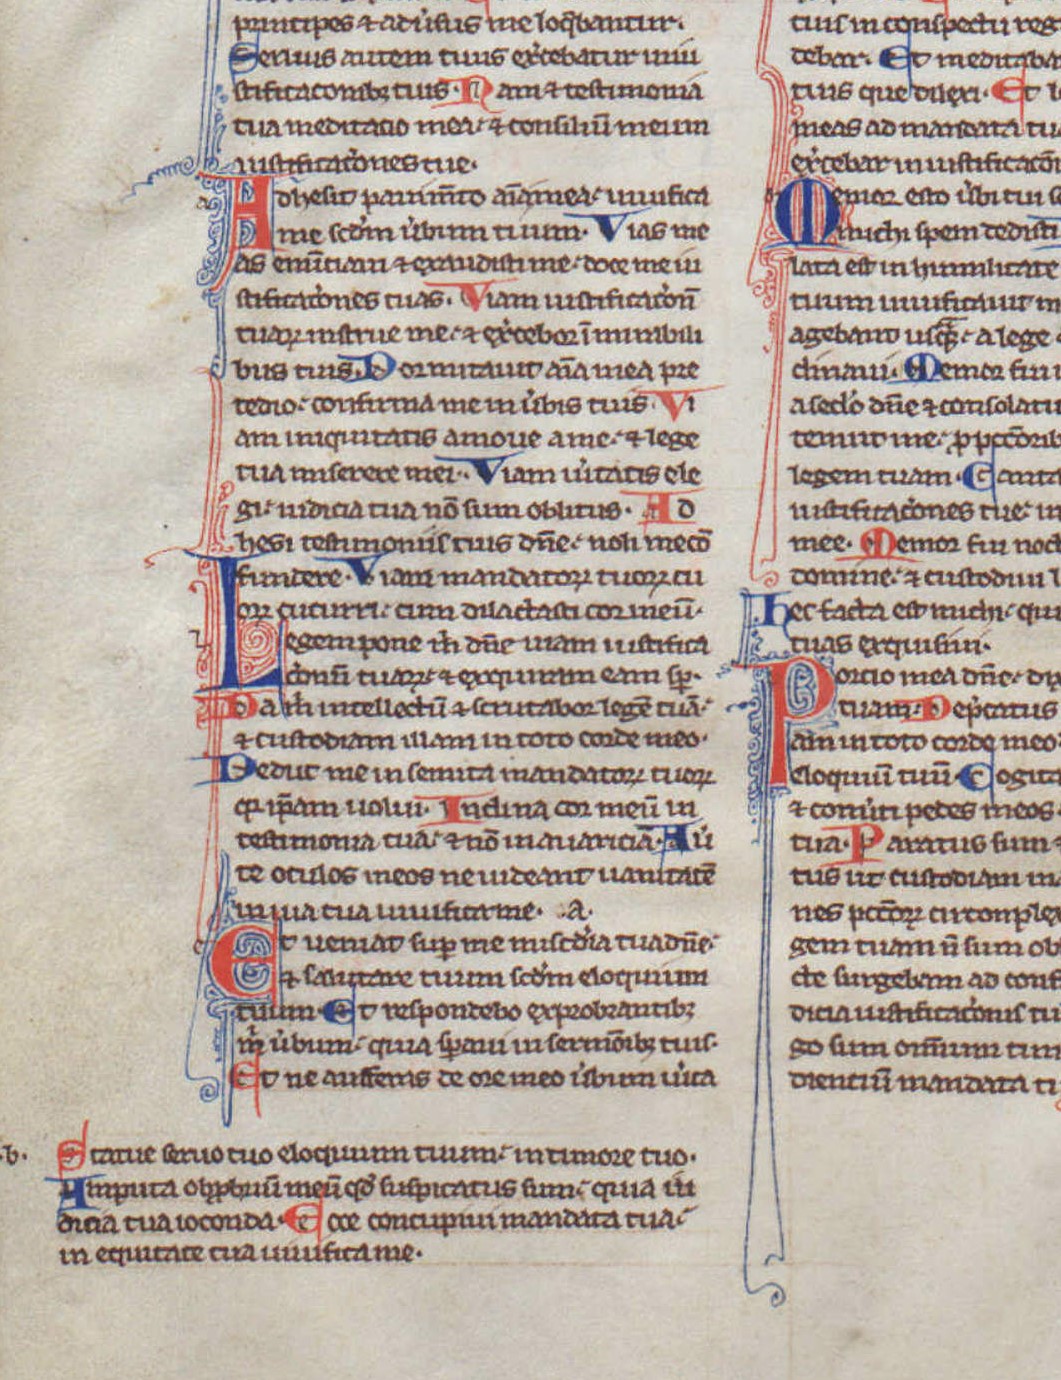 principes ⁊ adu̾sus me loq̾bantur.
Seruus autem tuus ex̾cebatur in iu
stificac̃onibꝫ tuis. Nam ⁊ testimonia
tua meditacio mea: ⁊ consiliũ meum
iustificac̃ones tue.
Adhesit pauim̃to aĩa mea: uiuifica
me scd̃m u̾bum tuum. Vias me
as enũciaui ⁊ exaudisti me: doce me iu
stificac̃ones tuas. Viam iustificac̃onũ
tuaꝝ instrue me: ⁊ ex̾cebor ĩ mirabili
bus tuis. Dormitauit aĩa mea pre
tedio: confirma me in u̾bis tuis. Vi
am iniquitatis amoue a me: ⁊ lege
tua miserere mei. Viam u̾itatis ele
gi: iudicia tua nõ sum oblitus. Ad
hesi testimoniis tuis dñe: noli me cõ
fundere. Viam mandatoꝝ tuoꝝ cu
curri: cum dilatasti cor meũ.
Legem pone m̃ dñe uiam iustifica
c̃onũ tuaꝝ: ⁊ exquiram eam sꝑ.
Da m̃ intellectũ ⁊ scrutabor legẽ tuã:
⁊ custodiam illam in toto corde meo.
Deduc me in semita mandatoꝝ tuoꝝ
q̃ ip̃am uolui. Inclina cor meũ in
testimonia tua: ⁊ nõ in auariciã. Au̾
te oculos meos ne uideant uanitatẽ
in uia tua uiuifica me. .a.
Et ueniat suꝑ me mis̃cdia tua dñe:
⁊ salutare tuum scd̃m eloquium
tuum. Et respondebo exprobrantibꝫ
m̃ u̾bum: quia sp̾aui in sermõibꝫ tuis.
Et ne auferas de ore meo u̾bum u̾ita
.b. Statue seruo tuo eloquium tuum: in timore tuo.
Amputa obꝓbriũ meũ qd̾ suspicatus sum: quia iu
dicia tua ioconda. Ecce concupiui mandata tua:
in equitate tua uiuifica me.
tuis in conspectu reg
debar. Et meditaba
tuis que dilexi. Et l
meas ad mandata tu
ex̾cebar in iustificac̃o
Memor esto u̾bi tui s
michi spem dedisti
lata est in humilitate
tuum uiuificauit m
agebant usq̃: a lege
clinaui. Memor fui
a sec̃lo dñe ⁊ consolatu
tenuit me: ꝓ pcc̃orib
legem tuam. Canta
iustificac̃ones tue: in
mee. Memor fui noc
domine: ⁊ custodiui l
Hec facta est michi: qui
tuas exquisiui.
Portio mea dñe: dix
tuam. Dep̾catus
iam in toto corde meo
eloquiũ tuũ. Cogita
⁊ conu̾ti pedes meos
tua. Paratus sum ⁊
tus ut custodiam m
nes pcc̃oꝝ circomplex
gem tuam ñ sum ob
cte surgebam ad conf
dicia iustificac̃onis tu
go sum om̃ium tim
dientiũ mandata t